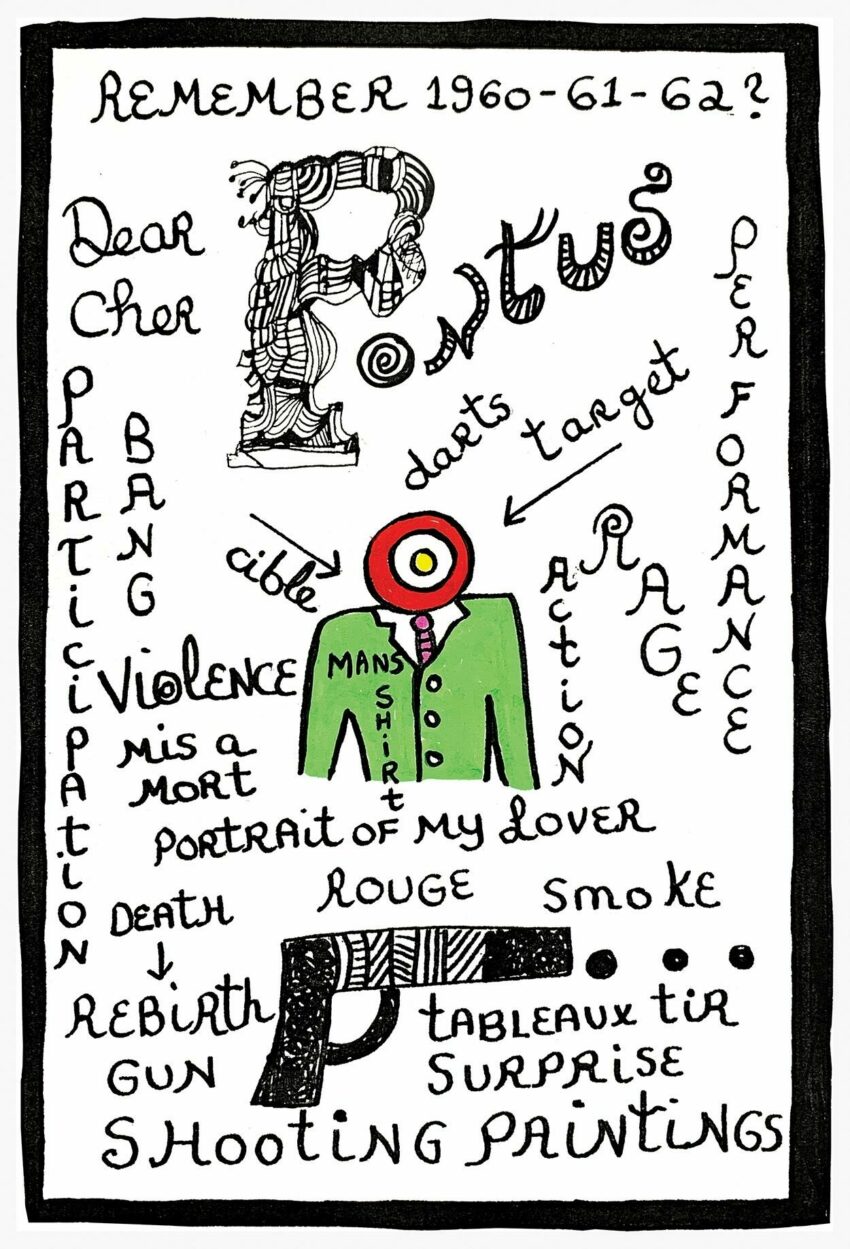 REMEMBER 1960-61-62?
Dear
Cher
Pontus
PERFORMANCE
PARTiCiPATiON
BANG
darts
target
cible
ACTiON
RAGE
ViOLENCE
MANS
SHiRt
Mis a
MORT
PORTRAit OF MY LOVER
ROUGE
SmoKE
DEATH
REBiRth
GUN
tABLEAUX tiR
SURPRiSE
SHOOtiNG PAiNtiNGS